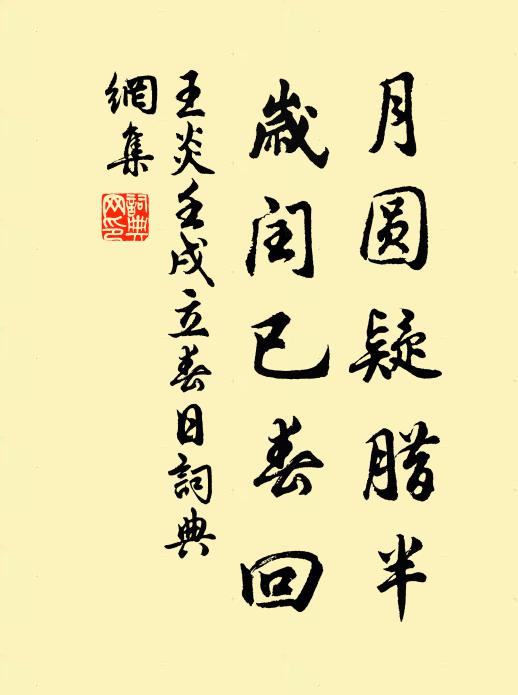 月圆疑腊半
歲闰已春回
王炎壬戌立春日詞典
網集
詞典
网印